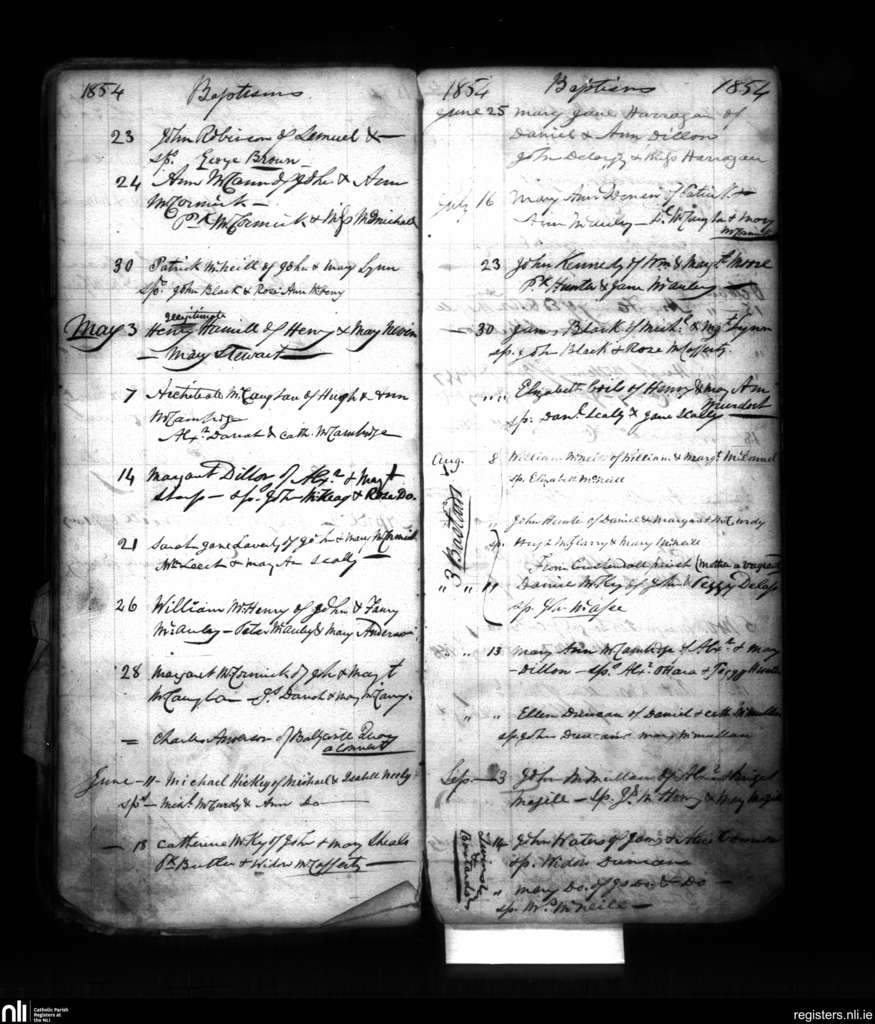 1854 Baptisms
23 John Robinson of Lemuel &
sps. George Brown
24 Ann McCann of John & Ann
McCormick
Pk McCormick & Miss McMichael
30 Patrick McNeill of John & Mary Lynn
sps. John Black & Rose Ann McHenry
illegitimate
May 3 Henry Hamill of Henry & May Nevin
Mary Stewart
7 Archibald McCaughan of Hugh & Ann
McCambridge
Alxr Darrah & Cath. McCambridge
14 Margaret Dillon of Alxr & Magt
Sharp - sps. John & Rose Do.
21 Sarah Jane Laverty of John & Mary McCormick
Leech & May An Scally
26 William McHenry of John & Fanny
McAuley - Peter McAuley & Mary Anderson
28 Margaret McCormick of John & Magt
McCaughan - Js Darrah & May
Charles Anderson of Ballycastle Quay
a Convert
June 11 Michael Hickey of Michael & Isabell
sps - Michl McCurdy & Ann Do
18 Catherine McKy of John & May Sheals
Pk Butler & Widow McCafferty
1854 Baptisms 1854
June 25 Mary Jane Harragan of
Daniel & Ann Dillon
John & Miss Harragan
July 16 Mary Ann of Patrick &
Ann McAuley - McCaughan & Mary
23 John Kennedy of Wm & Magt Moore
Pk Hunter & Jane McAuley
30 James Black of Michl & Mgt Lynn
sp. John Black & Rose McCafferty.
" " Elizabeth Coils of Henry & May Ann
Murdoch
sp. Danl Scally & Jane Scally
Aug. 8 William McNeill of William & Margt McConnel
sp. Elizabeth McNeill
" John of Daniel & Margaret McCurdy
sp. Hugh McGlarry & Mary
From Cushendall parish (mother a vagrant
" " 11 Daniel McKy of John & Peggy Delap
sp. John McAfee
" " 13 Mary Ann McCambridge of Alxr & May
Dillon - sps. Alxr O'Hara & Peggy
" " Ellen Duncan of Daniel & Cath McMullan
sp. John Duncan & Mary McMullan
Sep. 3 John McMullan of Alxr & Bridget
Magill - Sp. Js McHenry & May Magill
14 John Waters of James & Alice Connor
sp. Widow Duncan
" Mary Do. of Js Do. & Do
sp. Mrs. McNeill
Twins &
nli Catholic Parish Registers at the NLI
registers.nli.ie